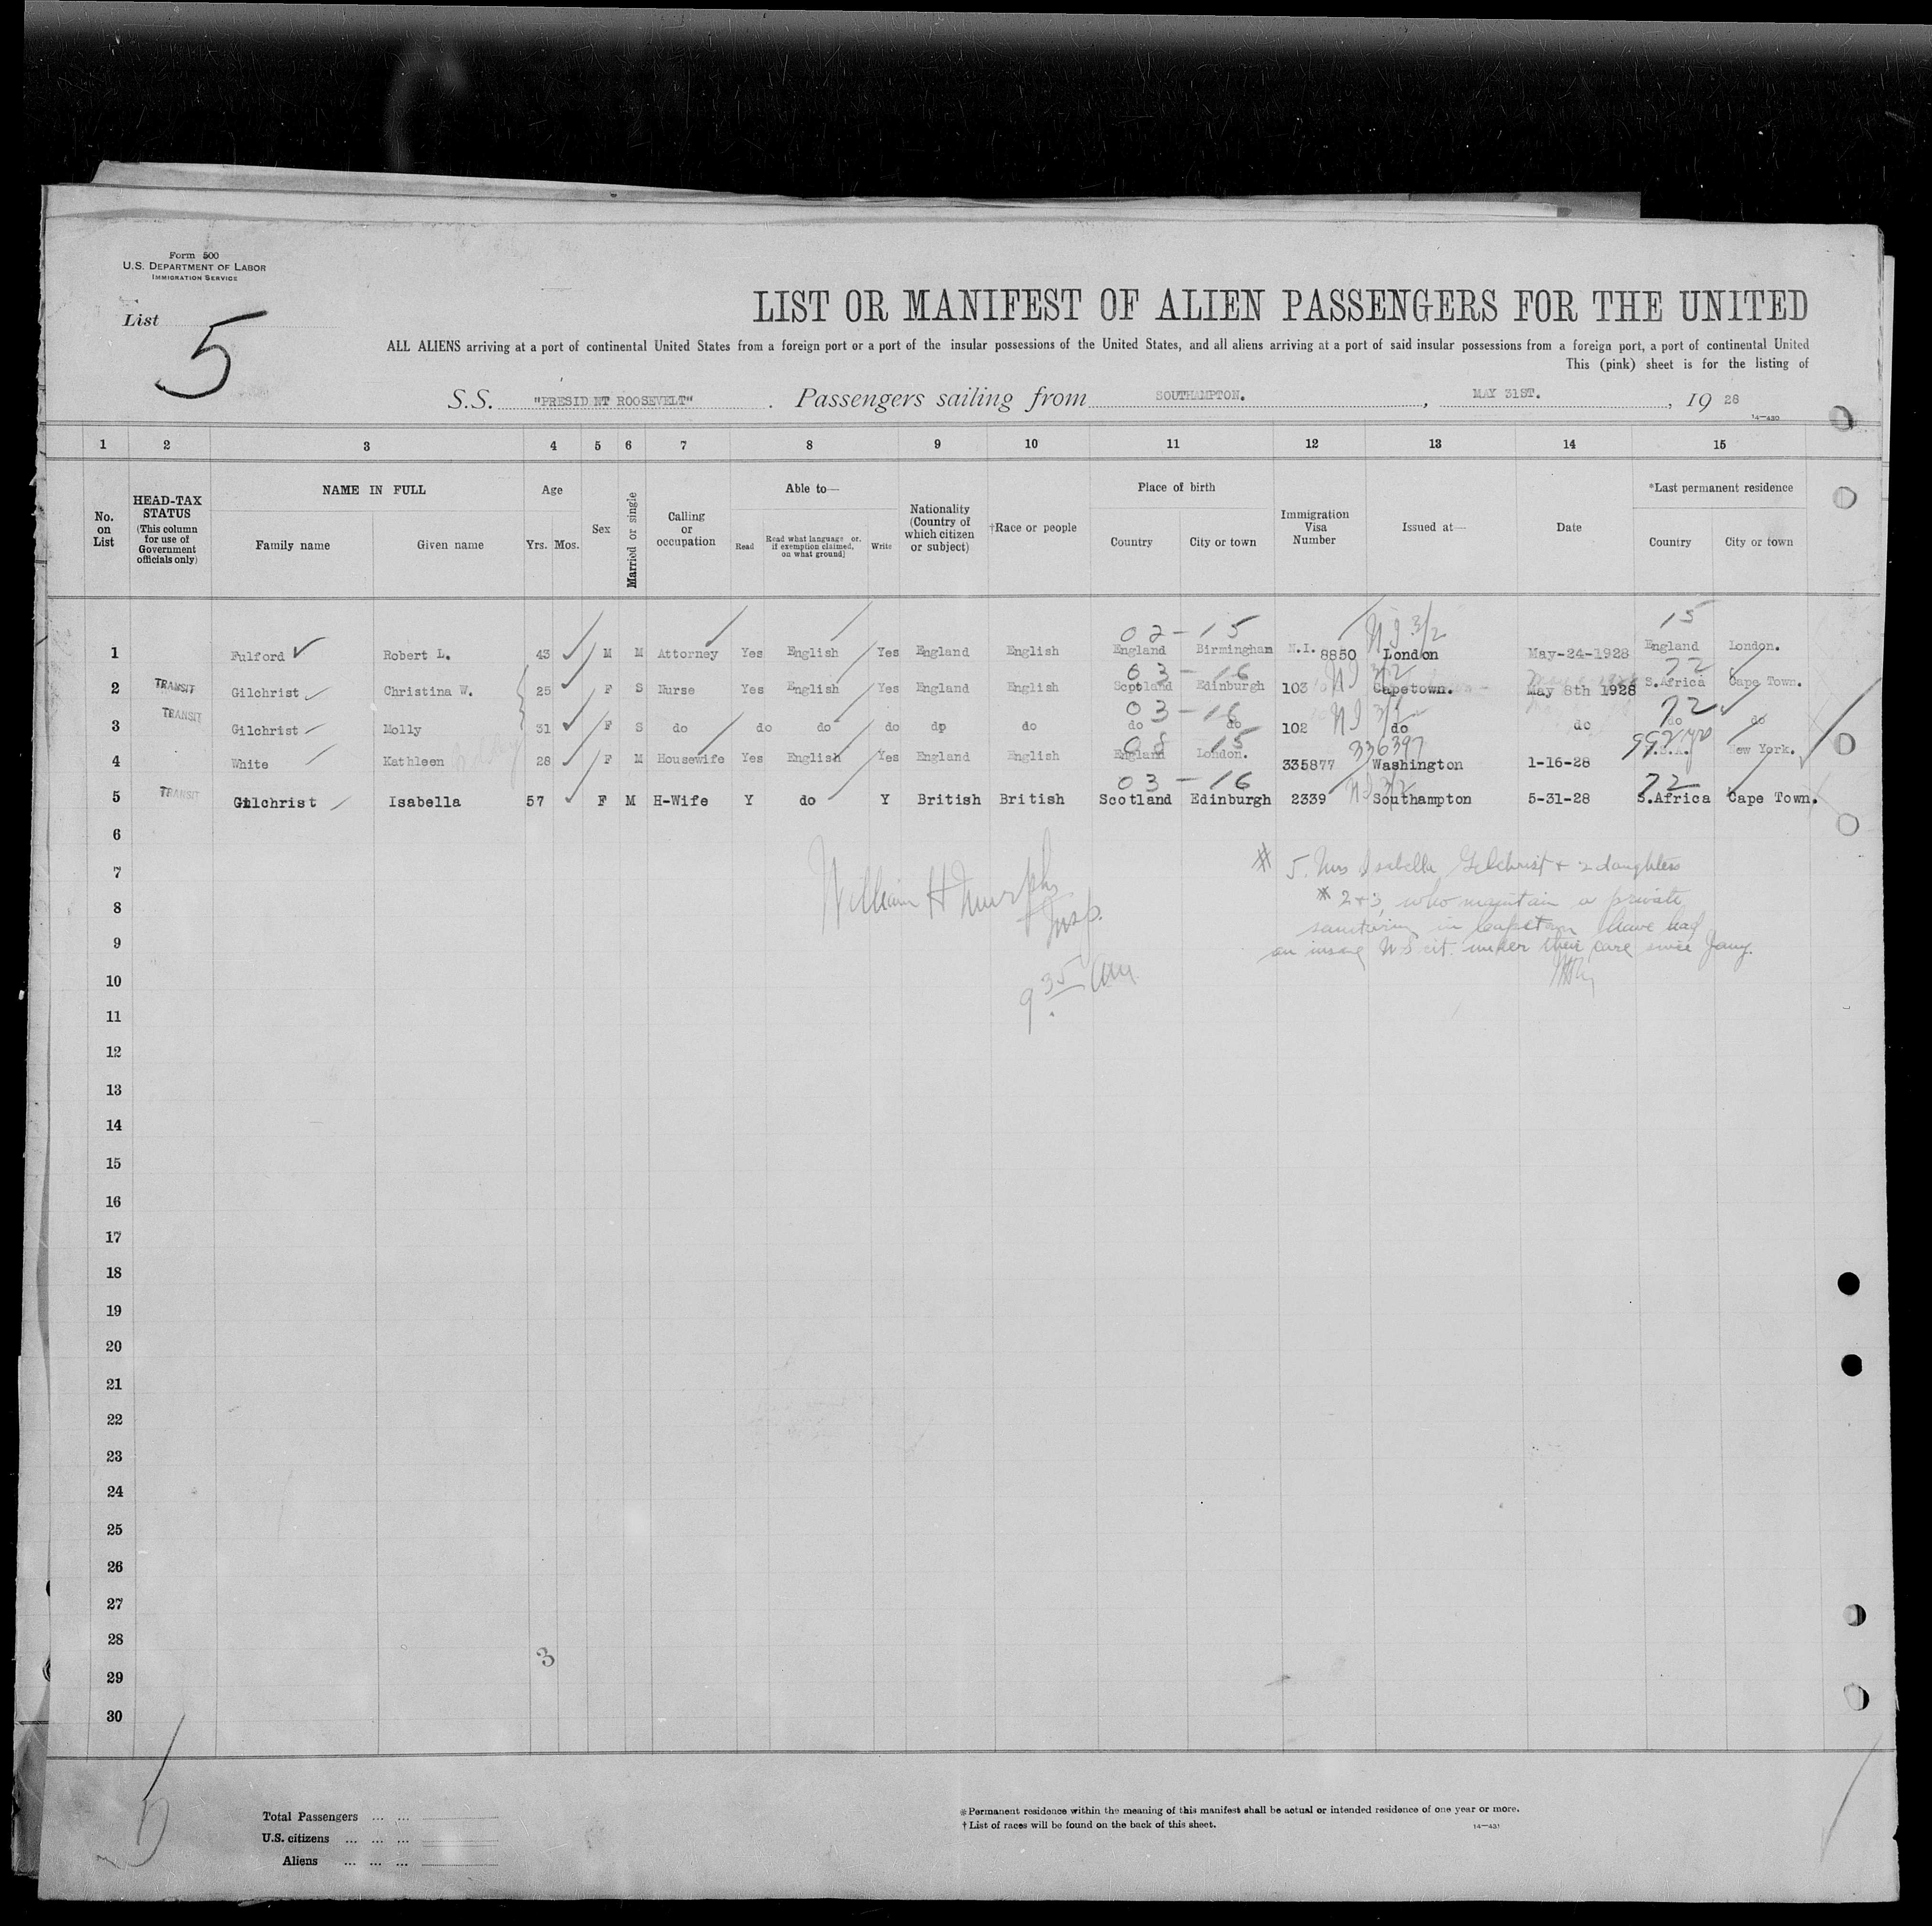 Form 500
U.S. DEPARTMENT OF LABOR
IMMIGRATION SERVICE
List 5
LIST OR MANIFEST OF ALIEN PASSENGERS FOR THE UNITED
ALL ALIENS arriving at a port of continental United States from a foreign port or a port of the insular possessions of the United States, and all aliens arriving at a port of said insular possessions from a foreign port, a port of continental United
This (pink) sheet is for the listing of
S.S. "PRESID NT ROOSEVELT". Passengers sailing from SOUTHAMPTON. , MAY 31ST. , 19 28
14—430
1 2 3 4 5 6 7 8 9 10 11 12 13 14 15
No. on List
HEAD-TAX STATUS (This column for use of Government officials only)
NAME IN FULL
Family name Given name
Age
Yrs. Mos.
Sex
Married or single
Calling or occupation
Able to—
Read
Read what language or, if exemption claimed, on what ground
Write
Nationality (Country of which citizen or subject)
†Race or people
Place of birth
Country City or town
Immigration Visa Number
Issued at—
Date
*Last permanent residence
Country City or town
02-15 NI 3/2 15
1 Fulford Robert L. 43 M M Attorney Yes English Yes England English England Birmingham N.I. 8850 London May-24-1928 England London.
03-16 NI 3/2 72
2 TRANSIT Gilchrist Christina W. 25 F S Nurse Yes English Yes England English Scotland Edinburgh 103 Capetown. May 8th 1928 S.Africa Cape Town.
03-16 NI 3/2 72
3 TRANSIT Gilchrist Molly 31 F S do do do do do do do do 102 do do do do
08 15 336397 99
4 White Kathleen 28 F M Housewife Yes English Yes England English England London. 335877 Washington 1-16-28 .S.A. ew York.
03-16 NI 3/2 72
5 TRANSIT Gilchrist Isabella 57 F M H-Wife Y do Y British British Scotland Edinburgh 2339 Southampton 5-31-28 S.Africa Cape Town.
6
7
8
9
10
11
12
13
14
15
16
17
18
19
20
21
22
23
24
25
26
27
28
29
30
William H Murphy
Insp.
9 35 AM
# 5. Mrs Isabella Gilchrist + 2 daughters
# 2+3, who maintain a private
in Capetown have had
an insane U S cit. under their care since Jany.
3
Total Passengers ... ...
U.S. citizens ... ... ...
Aliens ... ... ...
*Permanent residence within the meaning of this manifest shall be actual or intended residence of one year or more.
†List of races will be found on the back of this sheet.
14—431